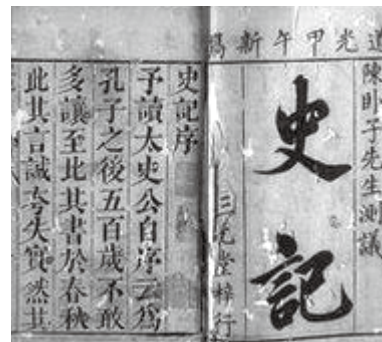 道光甲午新鐫
陳卧子先生測議
史記
三元堂梓行
史記序
予讀太史公自序云爲
孔子之後五百歲不敢
多讓至此其書於春秋
此其言誠夸失實然其